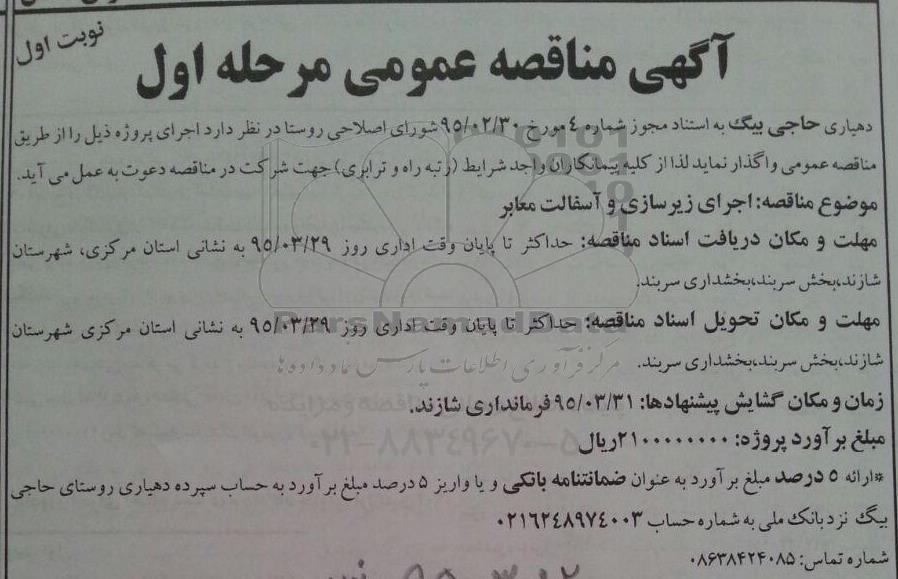 نوبت اول
آگهی مناقصه عمومی مرحله اول
دهیاری حاجی بیگ به استناد مجوز شماره ٤ مورخ ۹۵/۰۲/۳۰ شورای اصلاحی روستا در نظر دارد اجرای پروژه ذیل را از طریق
مناقصه عمومی واگذار نماید لذا از کلیه پیمانکاران واجد شرایط (رتبه راه و ترابری) جهت شرکت در مناقصه دعوت به عمل می آید.
موضوع مناقصه: اجرای زیرسازی و آسفالت معابر
مهلت و مکان دریافت اسناد مناقصه: حداکثر تا پایان وقت اداری روز ۹۵/۰۳/۲۹ به نشانی استان مرکزی، شهرستان
شازند،بخش سربند،بخشداری سربند.
مهلت و مکان تحویل اسناد مناقصه: حداکثر تا پایان وقت اداری روز ۹۵/۰۳/۲۹ به نشانی استان مرکزی شهرستان
شازند،بخش سربند،بخشداری سربند.
ParsNamadData
مرکز فرآوری اطلاعات پارس نماد داده ها
زمان و مکان گشایش پیشنهادها: ۹۵/۰۳/۳۱ فرمانداری شازند.
۰۲۱-۸۸۳۴۹۶۷۰-۵
مبلغ برآورد پروژه: ۲۱۰۰۰۰۰۰۰۰ریال
*ارائه ۵ درصد مبلغ برآورد به عنوان ضمانتنامه بانکی و یا واریز ۵ درصد مبلغ برآورد به حساب سپرده دهیاری روستای حاجی
بیگ نزد بانک ملی به شماره حساب ۰۲۱۶۲۴۸۹۷۴۰۰۳
شماره تماس: ۰۸۶۳۸۴۲۴۰۸۵